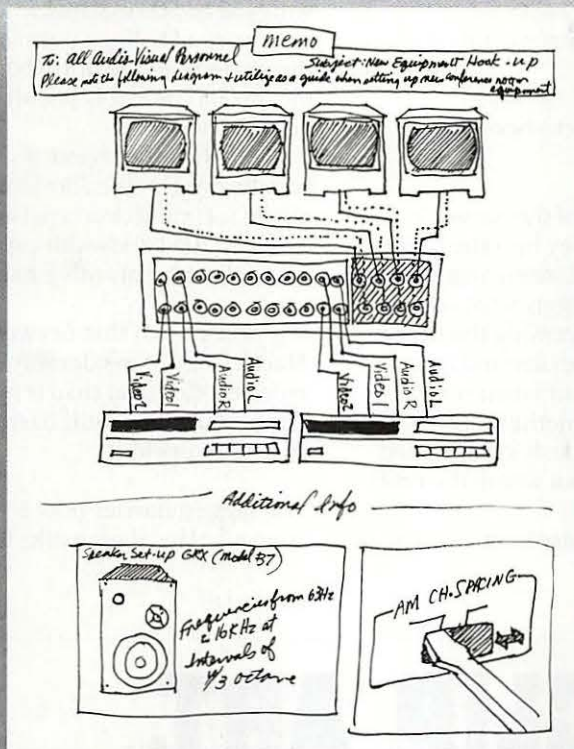 memo
To: All Audio-Visual Personnel
Subject: New Equipment Hook-up
Please note the following diagram + utilize as a guide when setting up new conference room
equipment
Video 2
Video 1
Audio R
Audio L
Video 2
Video 1
Audio R
Audio L
Additional Info
Speaker Set-up GRX (model 37)
Frequencies from 63Hz
2 16KHz at
Intervals of
1/3 octave
AM CH. SPACING